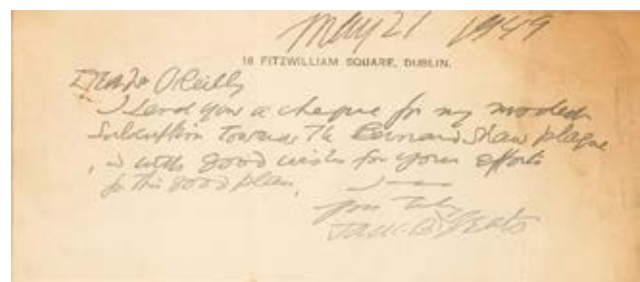 May 21 1949
18 FITZWILLIAM SQUARE, DUBLIN.
Dear Mr O'Reilly
I send you a cheque for my modest
Subscription towards The Bernard Shaw plaque
, with good wishes for your efforts
for this good plan,
Yours Truly
Jack B Yeats